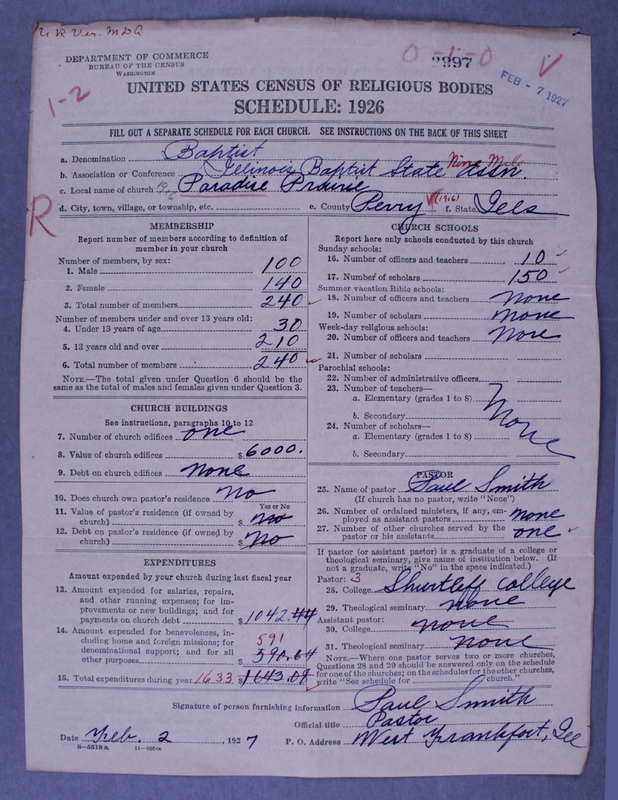 DEPARTMENT OF COMMERCE
BUREAU OF THE CENSUS
WASHINGTON
0-1-0
3397
V
FEB - 7 1927
1-2
UNITED STATES CENSUS OF RELIGIOUS BODIES
SCHEDULE: 1926
FILL OUT A SEPARATE SCHEDULE FOR EACH CHURCH. SEE INSTRUCTIONS ON THE BACK OF THIS SHEET
a. Denomination Baptist
b. Association or Conference Illinois Baptist State Assn
c. Local name of church Paradise Prairie
d. City, town, village, or township, etc.
e. County Perry (1916) f. State Ills
R
MEMBERSHIP
Report number of members according to definition of member in your church
Number of members, by sex:
1. Male 100
2. Female 140
3. Total number of members 240
Number of members under and over 13 years old:
4. Under 13 years of age 30
5. 13 years old and over 210
6. Total number of members 240
NOTE.—The total given under Question 6 should be the same as the total of males and females given under Question 3.
CHURCH BUILDINGS
See instructions, paragraphs 10 to 12
7. Number of church edifices one
8. Value of church edifices $ 6000.
9. Debt on church edifices none
10. Does church own pastor's residence no
Yes or No
11. Value of pastor's residence (if owned by church) $ no
12. Debt on pastor's residence (if owned by church) $ no
EXPENDITURES
Amount expended by your church during last fiscal year
13. Amount expended for salaries, repairs, and other running expenses; for improvements or new buildings; and for payments on church debt $ 1042.44
14. Amount expended for benevolences, including home and foreign missions; for denominational support; and for all other purposes $ 591 590.64
15. Total expenditures during year 1633 $ 1643.08
CHURCH SCHOOLS
Report here only schools conducted by this church
Sunday schools:
16. Number of officers and teachers 10
17. Number of scholars 150
Summer vacation Bible schools:
18. Number of officers and teachers none
19. Number of scholars none
Week-day religious schools:
20. Number of officers and teachers None
21. Number of scholars
Parochial schools:
22. Number of administrative officers
23. Number of teachers—
a. Elementary (grades 1 to 8)
b. Secondary
None
24. Number of scholars—
a. Elementary (grades 1 to 8)
b. Secondary
PASTOR
25. Name of pastor Paul Smith
(If church has no pastor, write "None")
26. Number of ordained ministers, if any, employed as assistant pastors none
27. Number of other churches served by the pastor or his assistants one
If pastor (or assistant pastor) is a graduate of a college or theological seminary, give name of institution below. (If not a graduate, write "No" in the space indicated.)
Pastor: 3
28. College Shurtleff College
29. Theological seminary none
Assistant pastor:
30. College none
31. Theological seminary none
NOTE.—Where one pastor serves two or more churches, Questions 28 and 29 should be answered only on the schedule for one of the churches; on the schedules for the other churches, write "See schedule for church."
Signature of person furnishing information Paul Smith
Official title Pastor
Date Feb. 2, 1927 P. O. Address West Frankfort, Ill
8-5518a